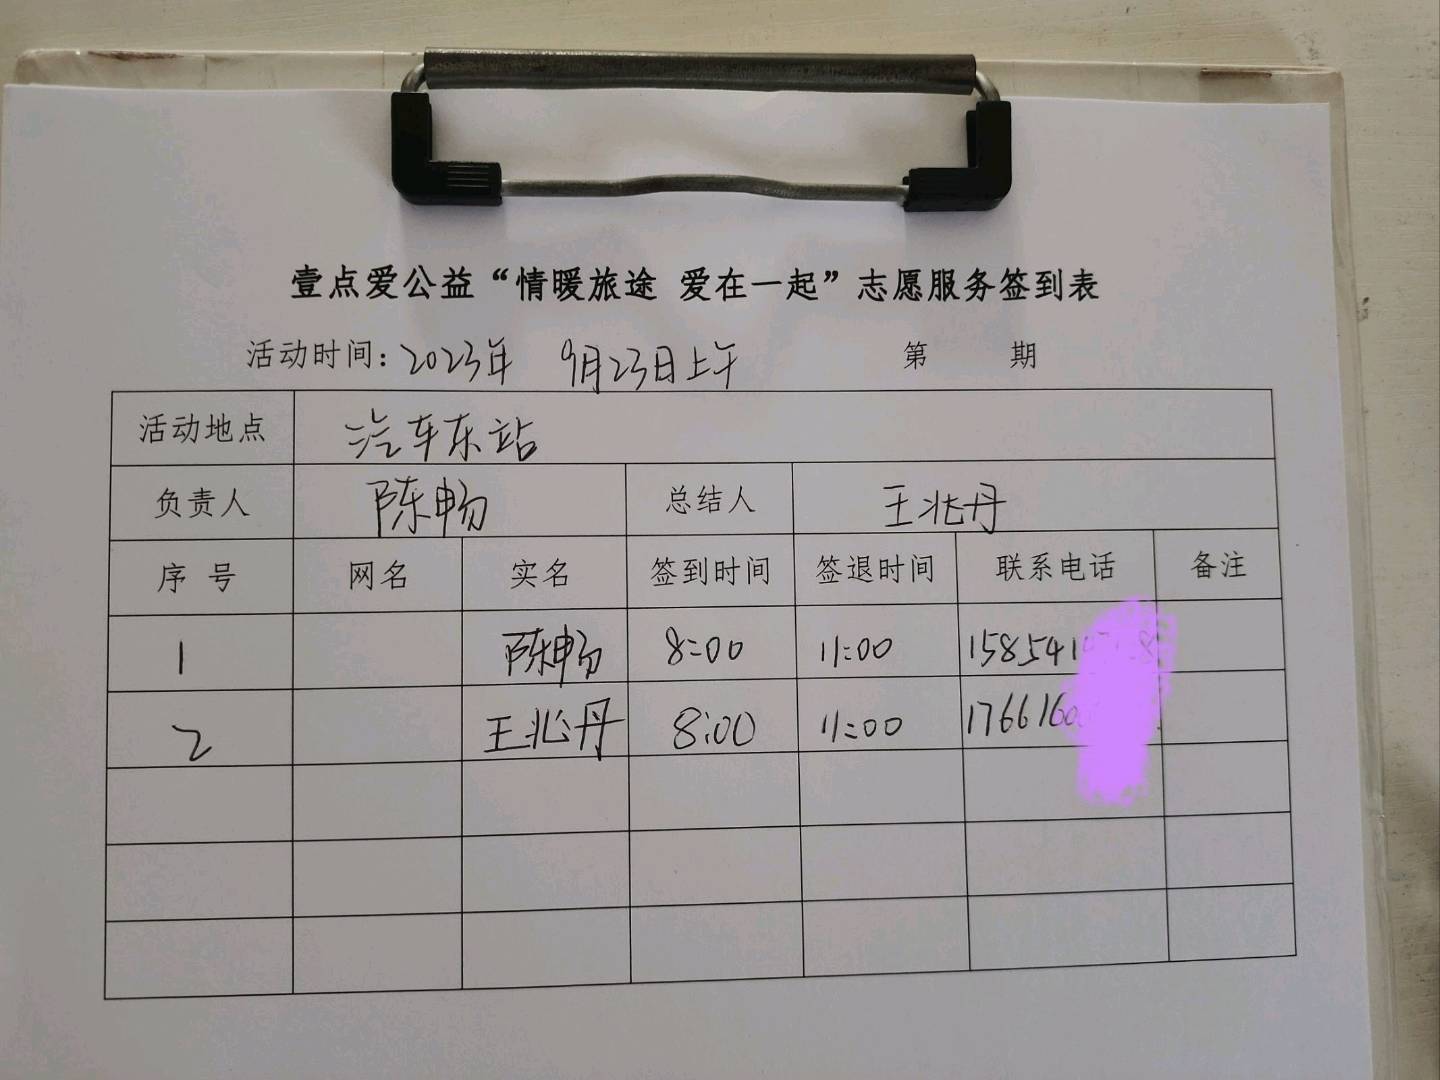 壹点爱公益“情暖旅途 爱在一起”志愿服务签到表
活动时间：2023年 9月23日上午 第 期
活动地点 汽车东站
负责人 陈畅 总结人 王兆丹
序号 网名 实名 签到时间 签退时间 联系电话 备注
1 陈畅 8:00 11:00 158541
2 王兆丹 8:00 11:00 176616